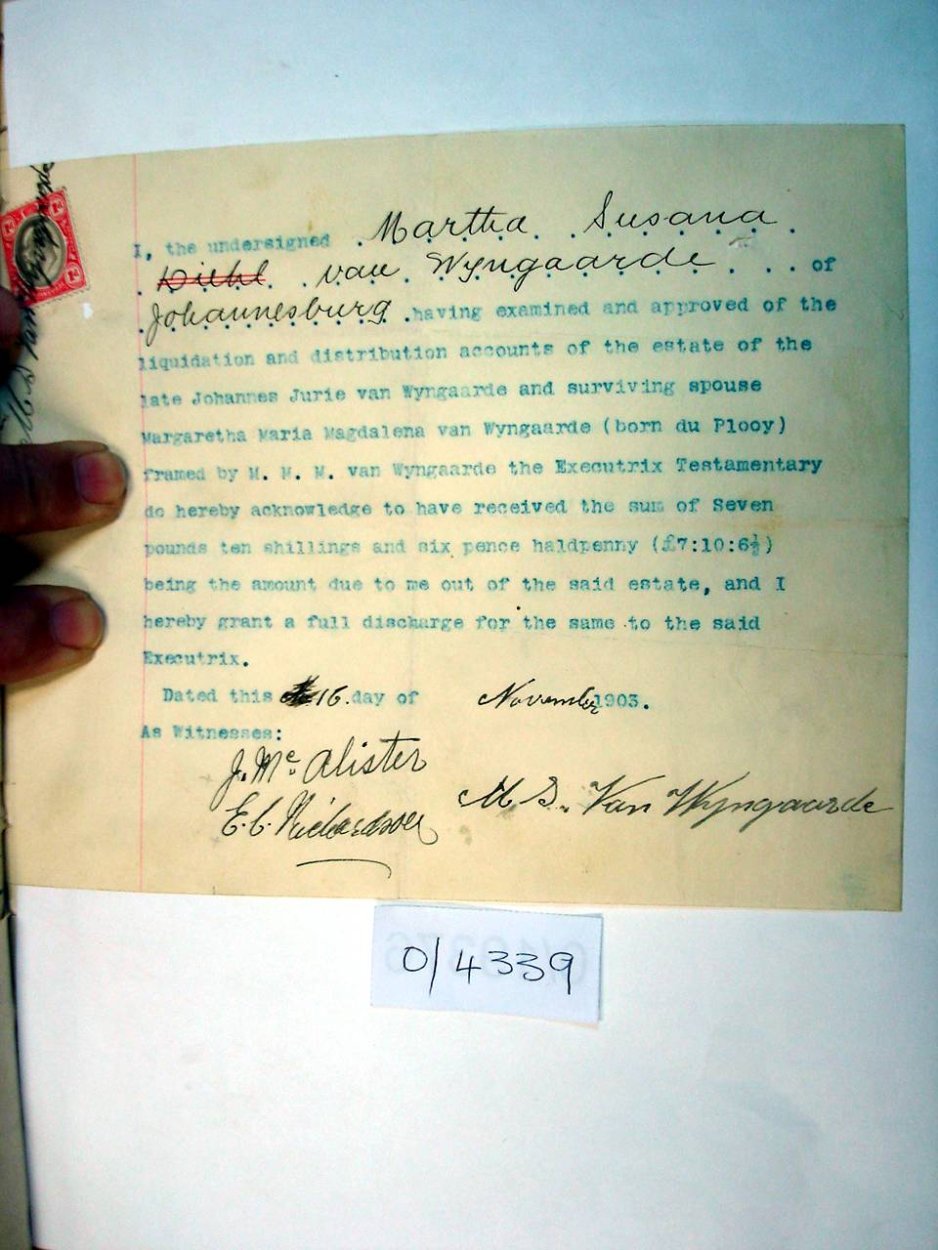 I, the undersigned Martha Susana
Diehl van Wyngaarde of
Johannesburg having examined and approved of the
liquidation and distribution accounts of the estate of the
late Johannes Jurie van Wyngaarde and surviving spouse
Margaretha Maria Magdalena van Wyngaarde (born du Plooy)
framed by M. M. M. van Wyngaarde the Executrix Testamentary
do hereby acknowledge to have received the sum of Seven
pounds ten shillings and six pence haldpenny (£7:10:6½)
being the amount due to me out of the said estate, and I
hereby grant a full discharge for the same to the said
Executrix.
Dated this 16. day of November 1903.
As Witnesses:
J. Mc. Alister
E. C. Richardson
M. S. Van Wyngaarde
0/4339